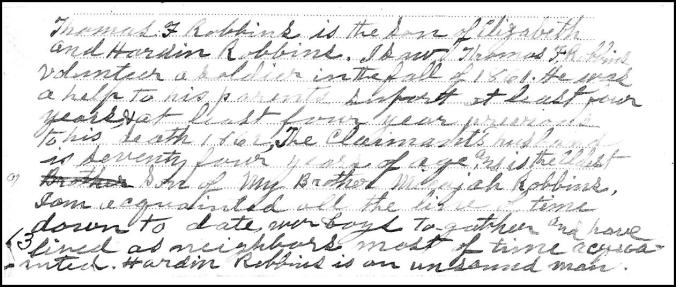 Thomas F Robbins is the Son of Elizabeth
and Hardin Robbins. I Saw Thomas F Robbins
volunteer a Soldier in the fall of 1861. He was
a help to his parents Suport at least four
years & at least four year previous
to his death 1862, The Claimants husband
is Seventy four years of age and is the oldest
Son of My Brother Micajah Robbins.
I am acquainted all the time
down to date, wer boys to gather and have
(3 lived as neighbors most of time acqua-
inted. Hardin Robbins is an unsound man.